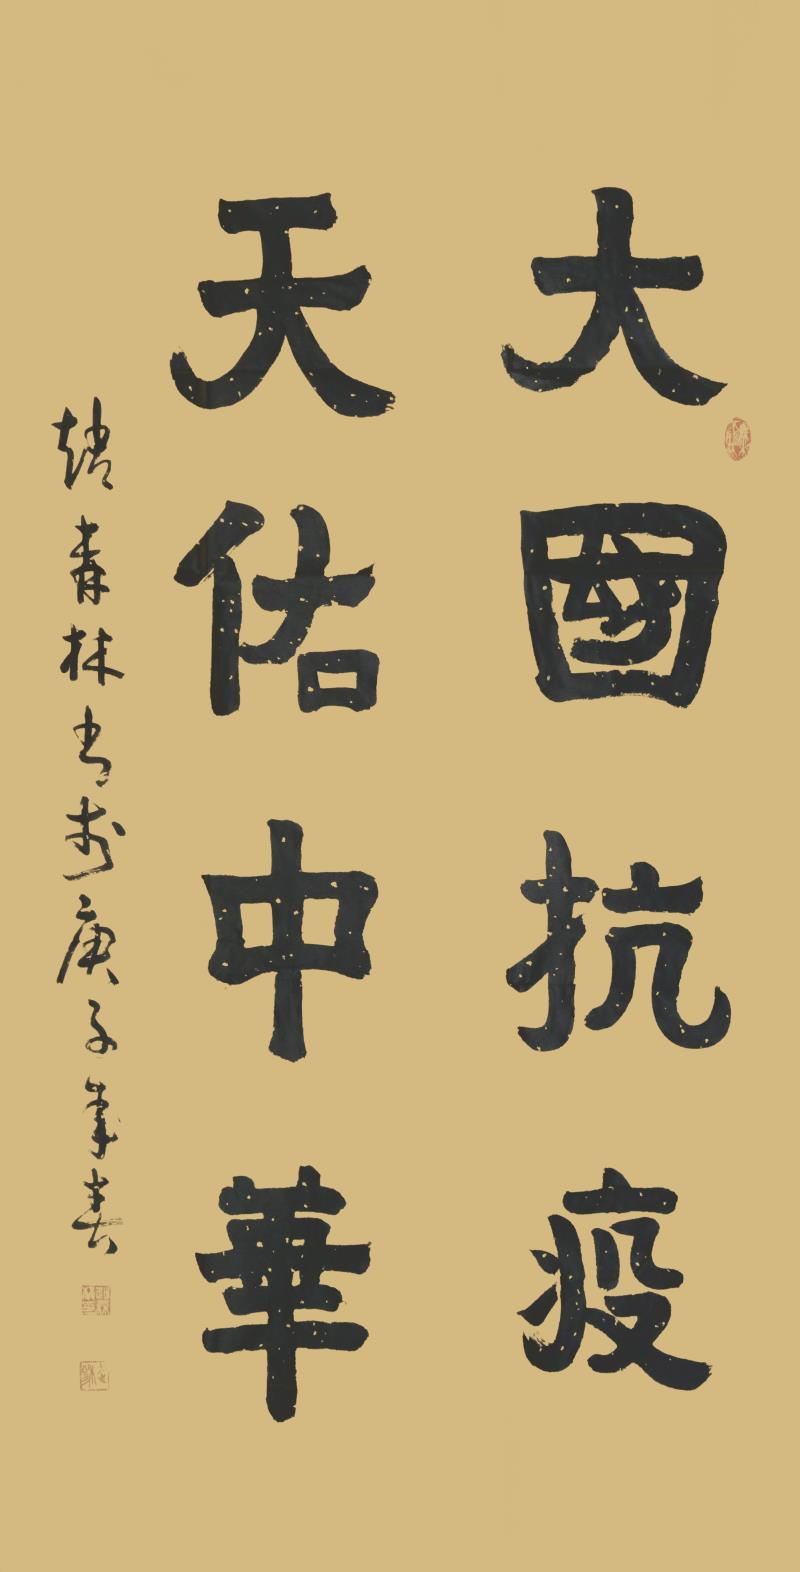 大國抗疫
天佑中華
趙青林書於庚子年春